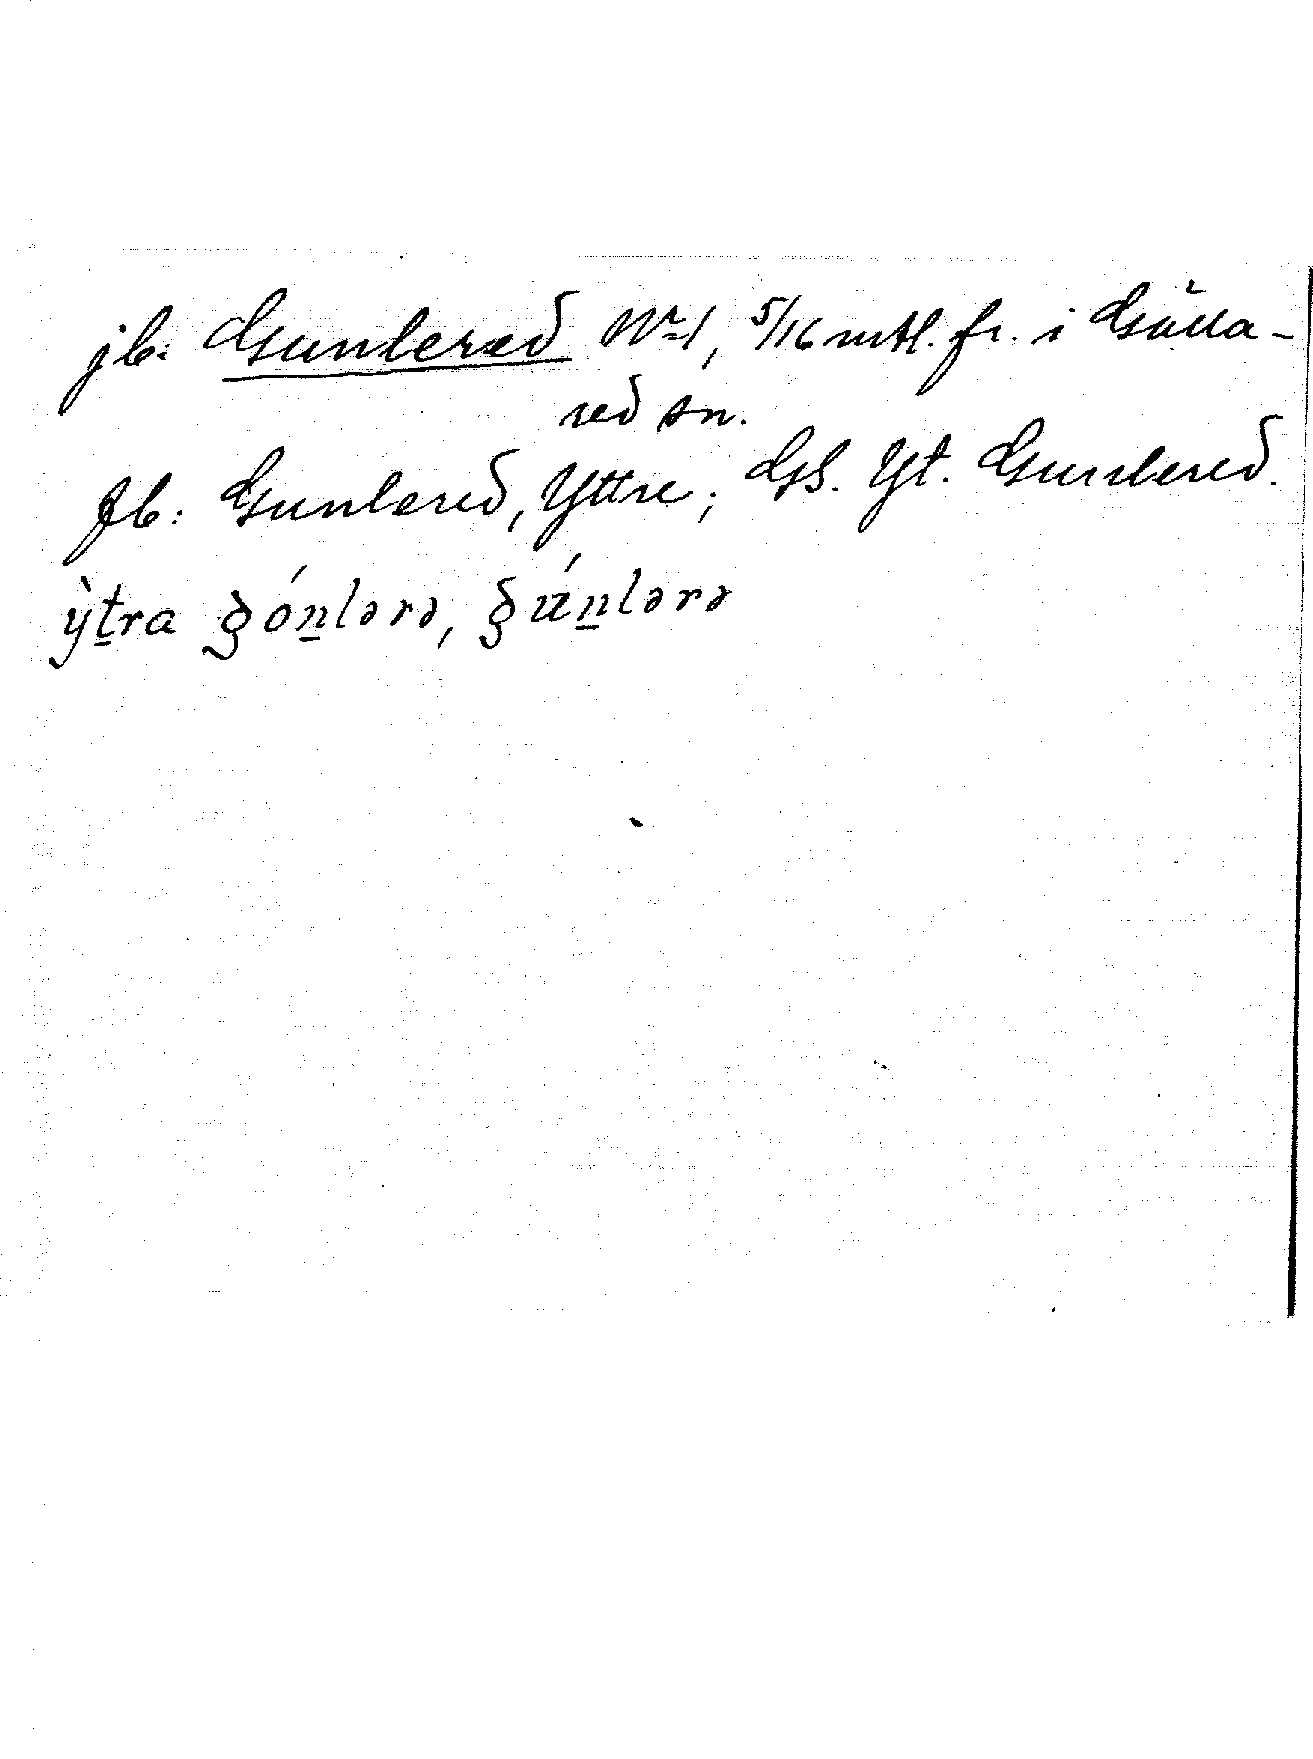 jb. Gunlered Nr 1, 5/16 mtl. fr. i Gälla-
red sn.
Jb: Gunlered, Yttre; GS. Yt. Gunlered.
ỳt̲ra gón̲lərə, gún̲lərə